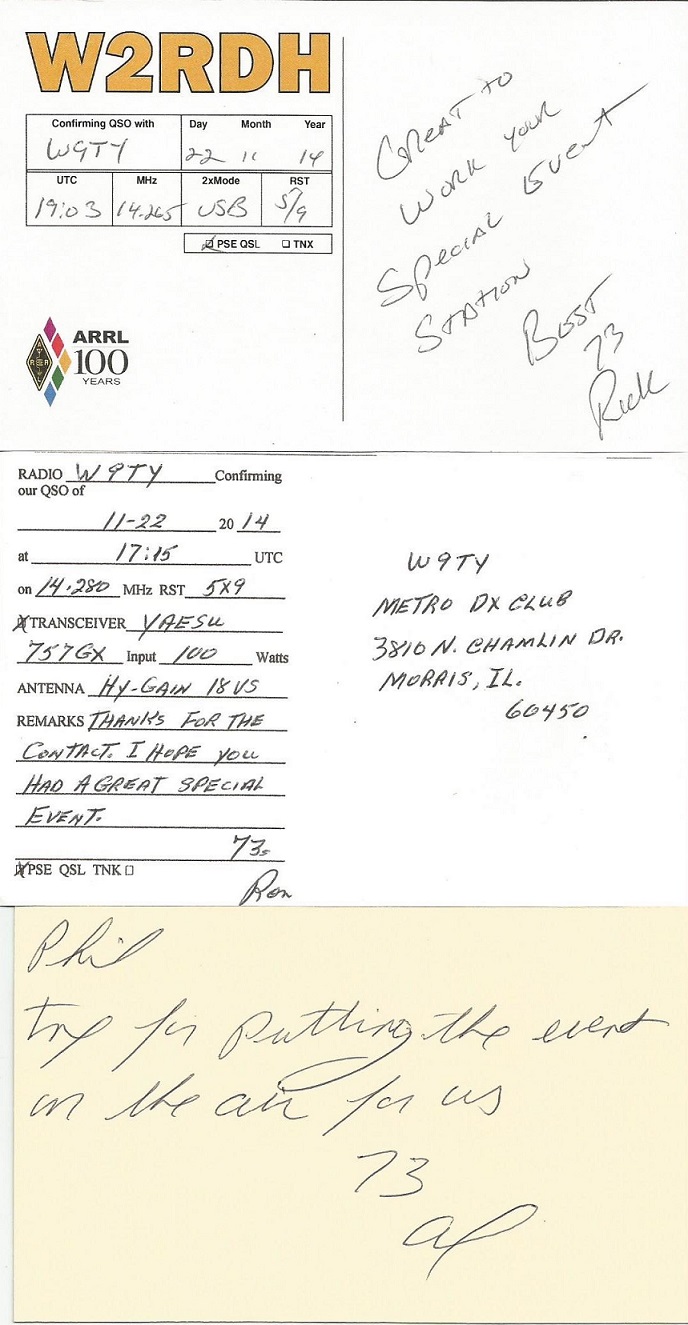 W2RDH
Confirming QSO with Day Month Year
W9TY 22 11 14
UTC MHz 2xMode RST
19:03 14.265 USB 5/9
PSE QSL TNX
ARRL
100
YEARS
GREAT TO
WORK YOUR
SPECIAL EVENT
STATION
BEST
73
Rick
RADIO W9TY Confirming
our QSO of
11-22 20 14
at 17:15 UTC
on 14.280 MHz RST 5X9
TRANSCEIVER YAESU
757GX Input 100 Watts
ANTENNA HY-GAIN 18VS
REMARKS THANKS FOR THE
CONTACT. I HOPE YOU
HAD A GREAT SPECIAL
EVENT.
73.
PSE QSL TNK
Ron
W9TY
METRO DX CLUB
3810 N. CHAMLIN DR.
MORRIS, IL.
60450
Phil
Tnx for putting the event
on the air for us
73
Al